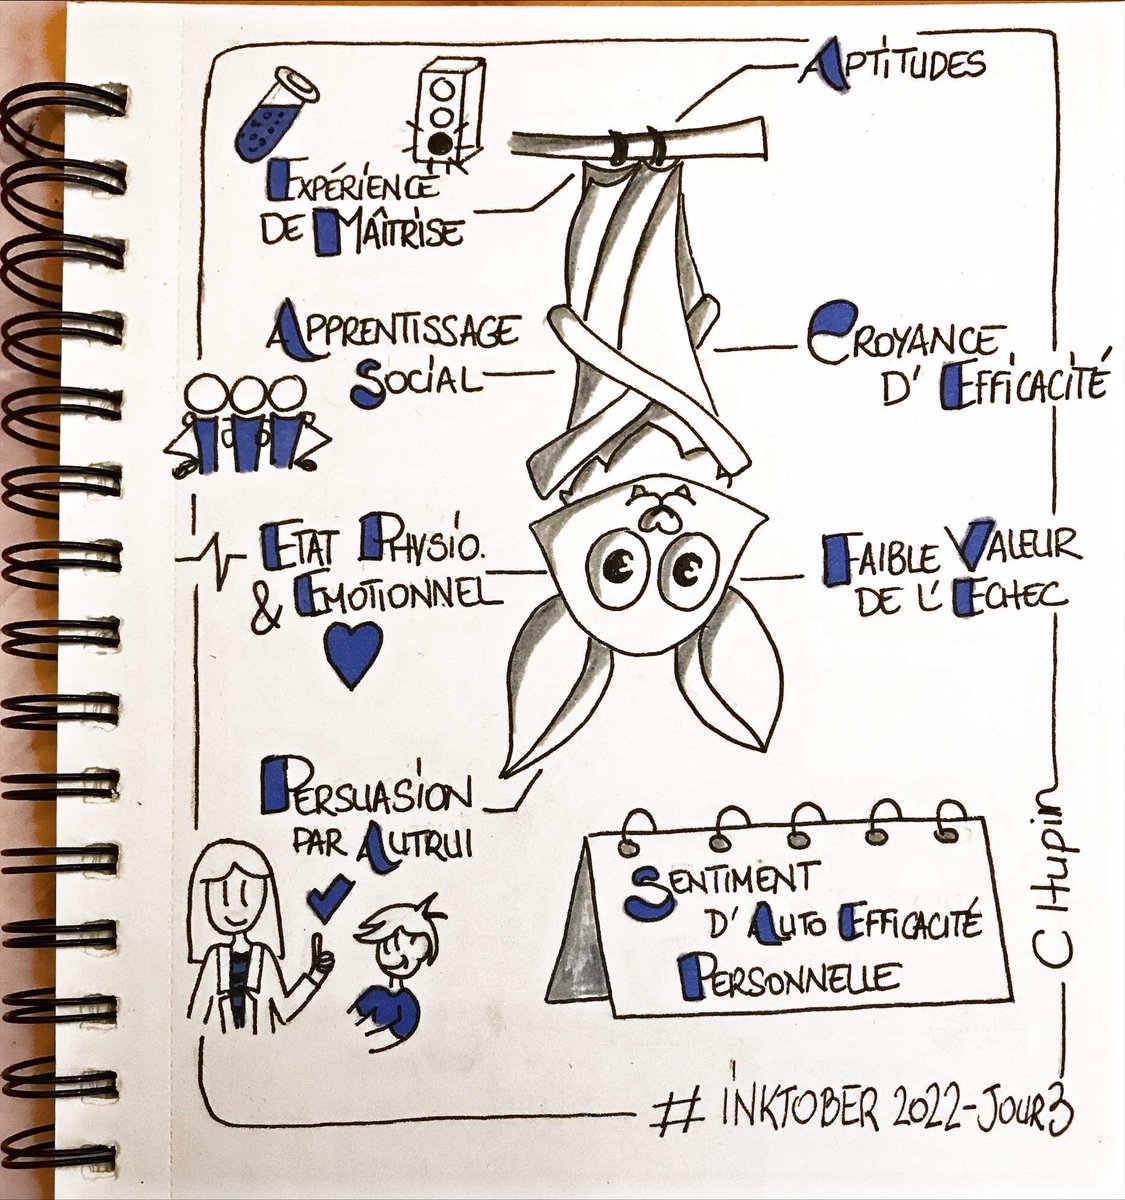 Aptitudes
Expérience
de Maîtrise
Apprentissage
Social
Croyance
d' Efficacité
Etat Physio.
& Emotionnel
Faible Valeur
de l' Echec
Persuasion
par Autrui
Sentiment
d' Auto Efficacité
Personnelle
C Hupin
# inktober 2022-Jour 3